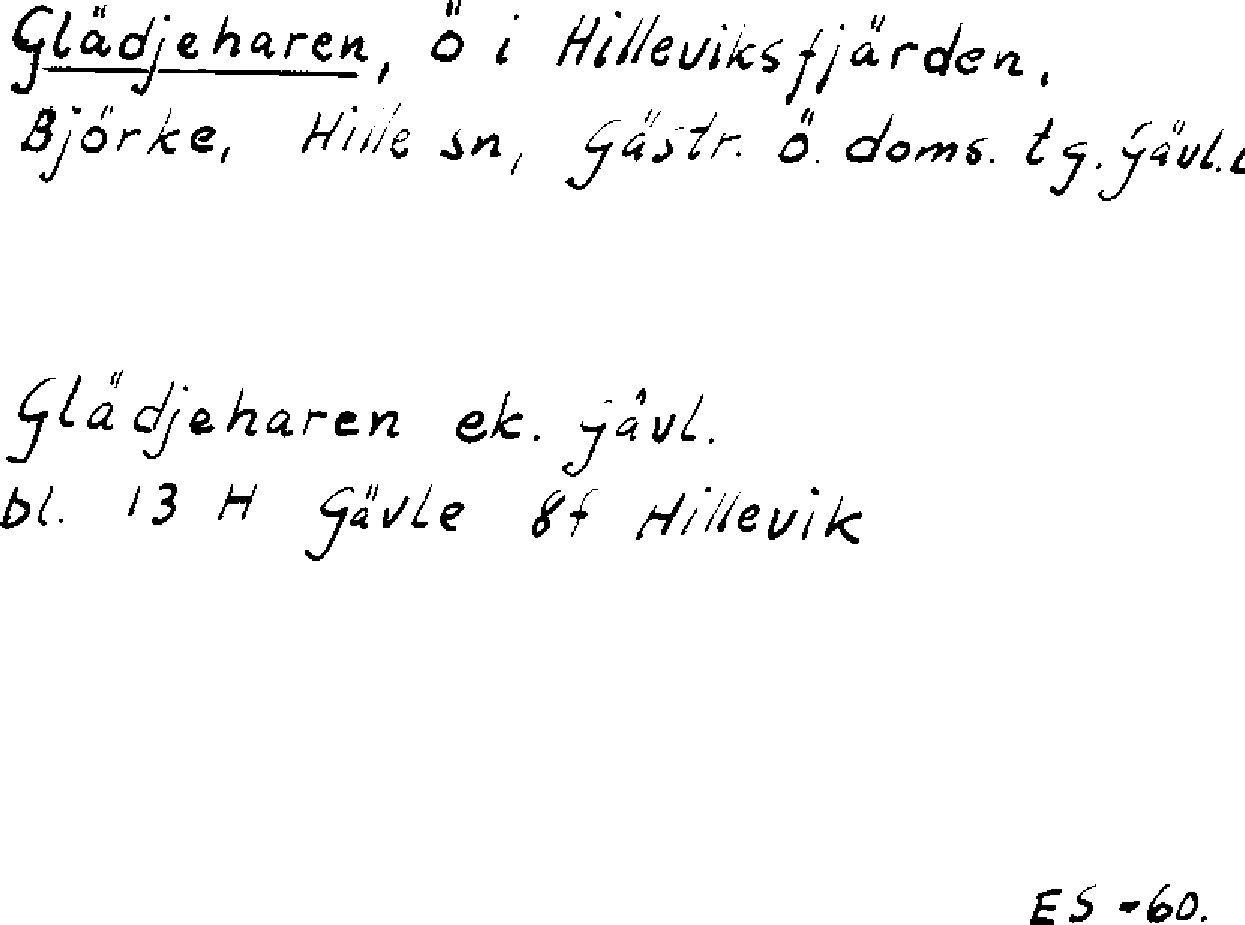 Glädjeharen, ö i Hilleviksfjärden,
Björke, Hille sn, Gästr. ö. doms. tg. Gävl. l
Glädjeharen ek. Gävl.
bl. 13 H Gävle 8f Hillevik
ES -60.